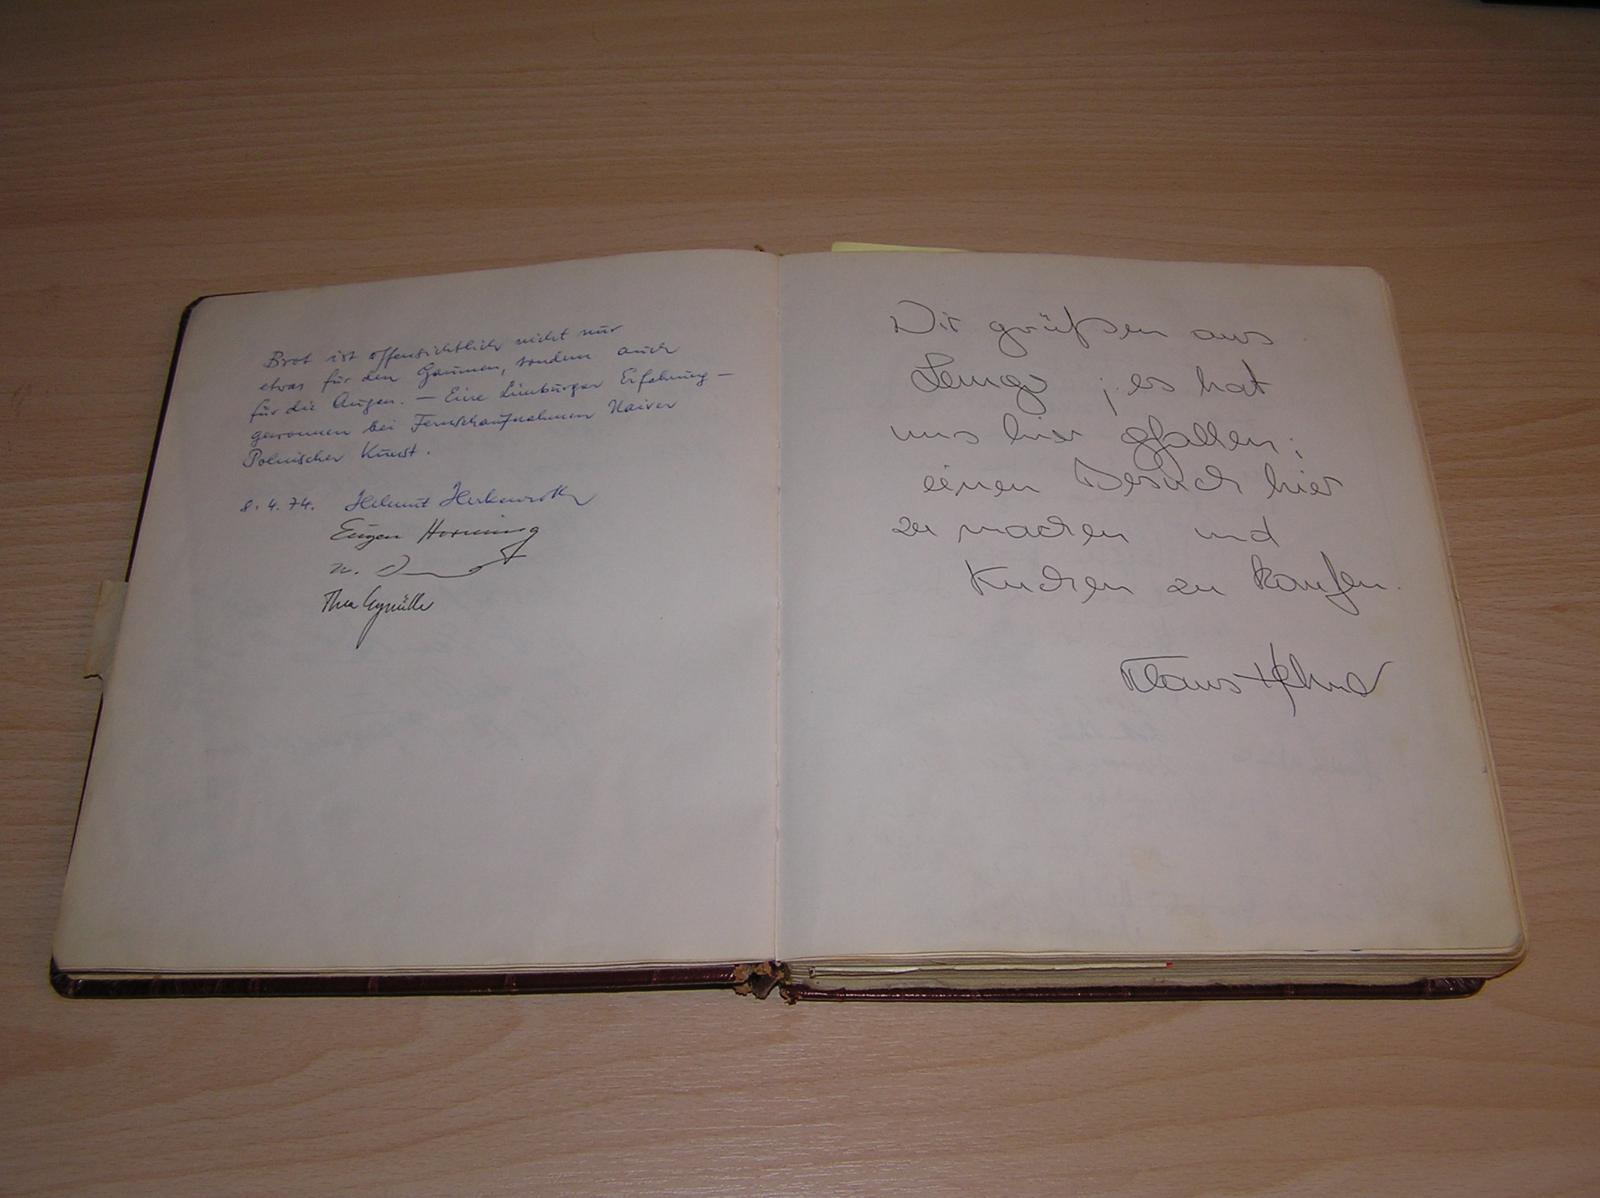 Brot ist offensichtlich nicht nur
etwas für den Gaumen, sondern auch
für die Augen. — Eine Limburger Erfahrung —
gewonnen bei Fernsehaufnahmen Naiver
Polnischer Kunst.
8.4.74. Helmut
Eugen Hornung
Thea
Wir grüßen aus
Lemgo ; es hat
uns hier gefallen;
einen Besuch hier
zu machen und
Kuchen zu kaufen.
Klaus